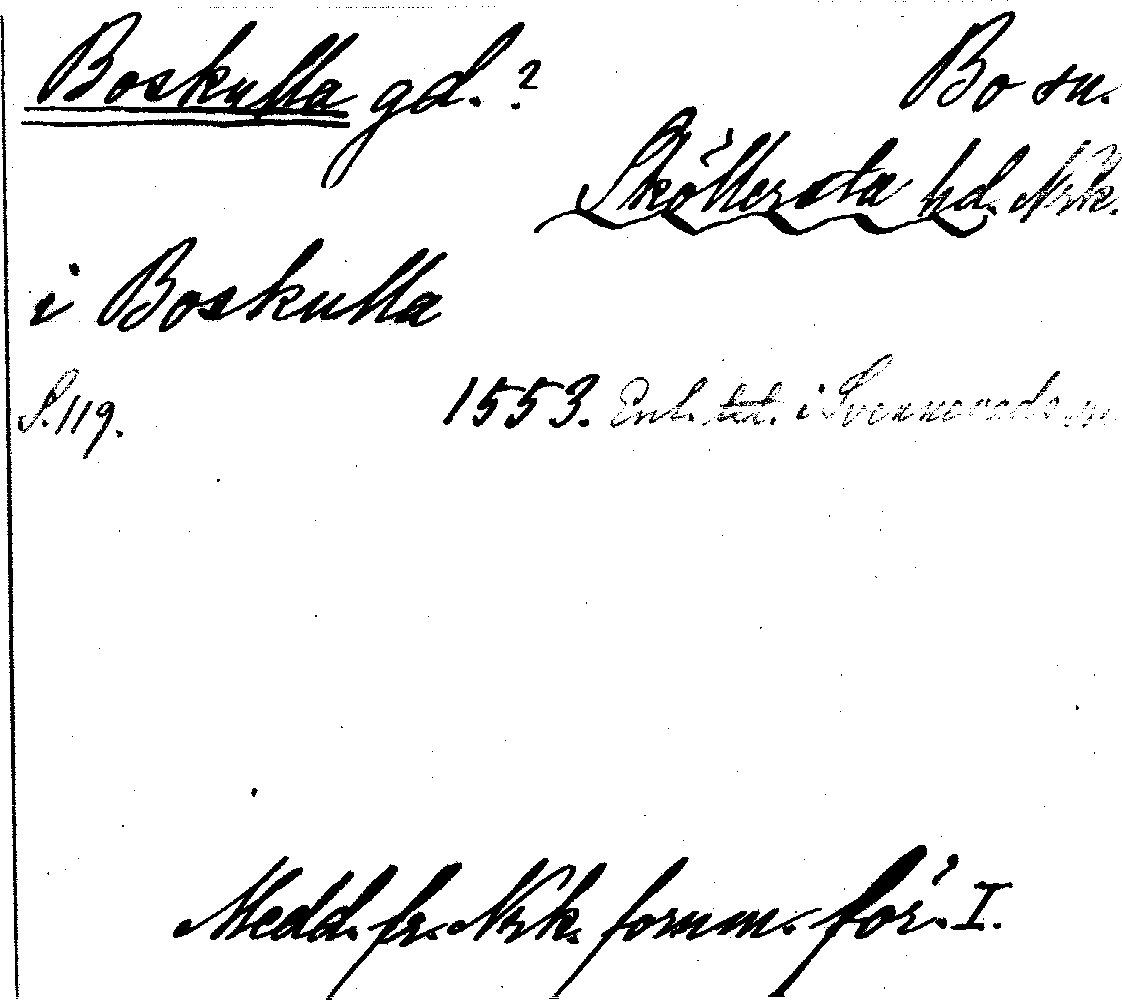 Boskulla gd. ? Bo sn.
Sköllersta hd. Nrk.
i Boskulla
S. 119. 1553. Enl. txt. i Svennevads sn
Medd. fr. Nrk. fornm. för. I.